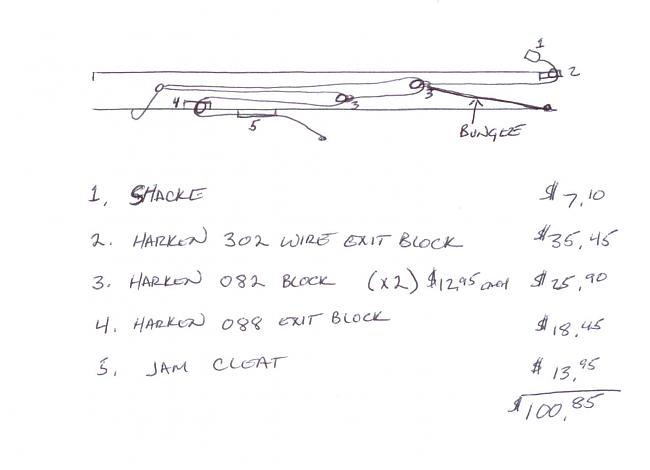 1
2
3
3
4
5
BUNGEE
1, SHACKE $7,10
2. HARKEN 302 WIRE EXIT BLOCK $35,45
3. HARKEN 082 BLOCK (x2) $12,95 each $25,90
4. HARKEN 088 EXIT BLOCK $18,45
5, JAM CLEAT $13,95
$100,85